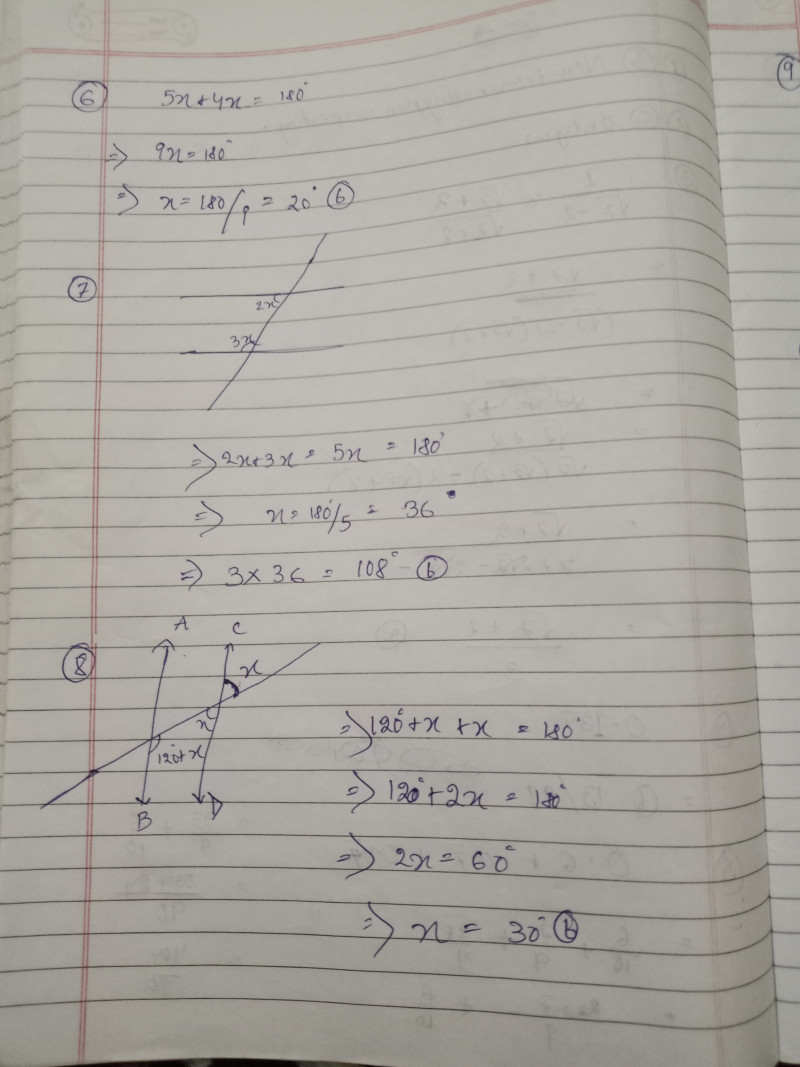 9
⑥ 5x+4x = 180°
⇒ 9x = 180°
⇒ x = 180/9 = 20° ⓑ
⑦
2x
3x
⇒ 2x+3x = 5x = 180°
⇒ x = 180°/5 = 36°
⇒ 3×36 = 108° - ⓑ
⑧
A C
x
x
120°+x
B D
⇒ 120°+x+x = 180°
⇒ 120°+2x = 180°
⇒ 2x = 60°
⇒ x = 30° ⓑ